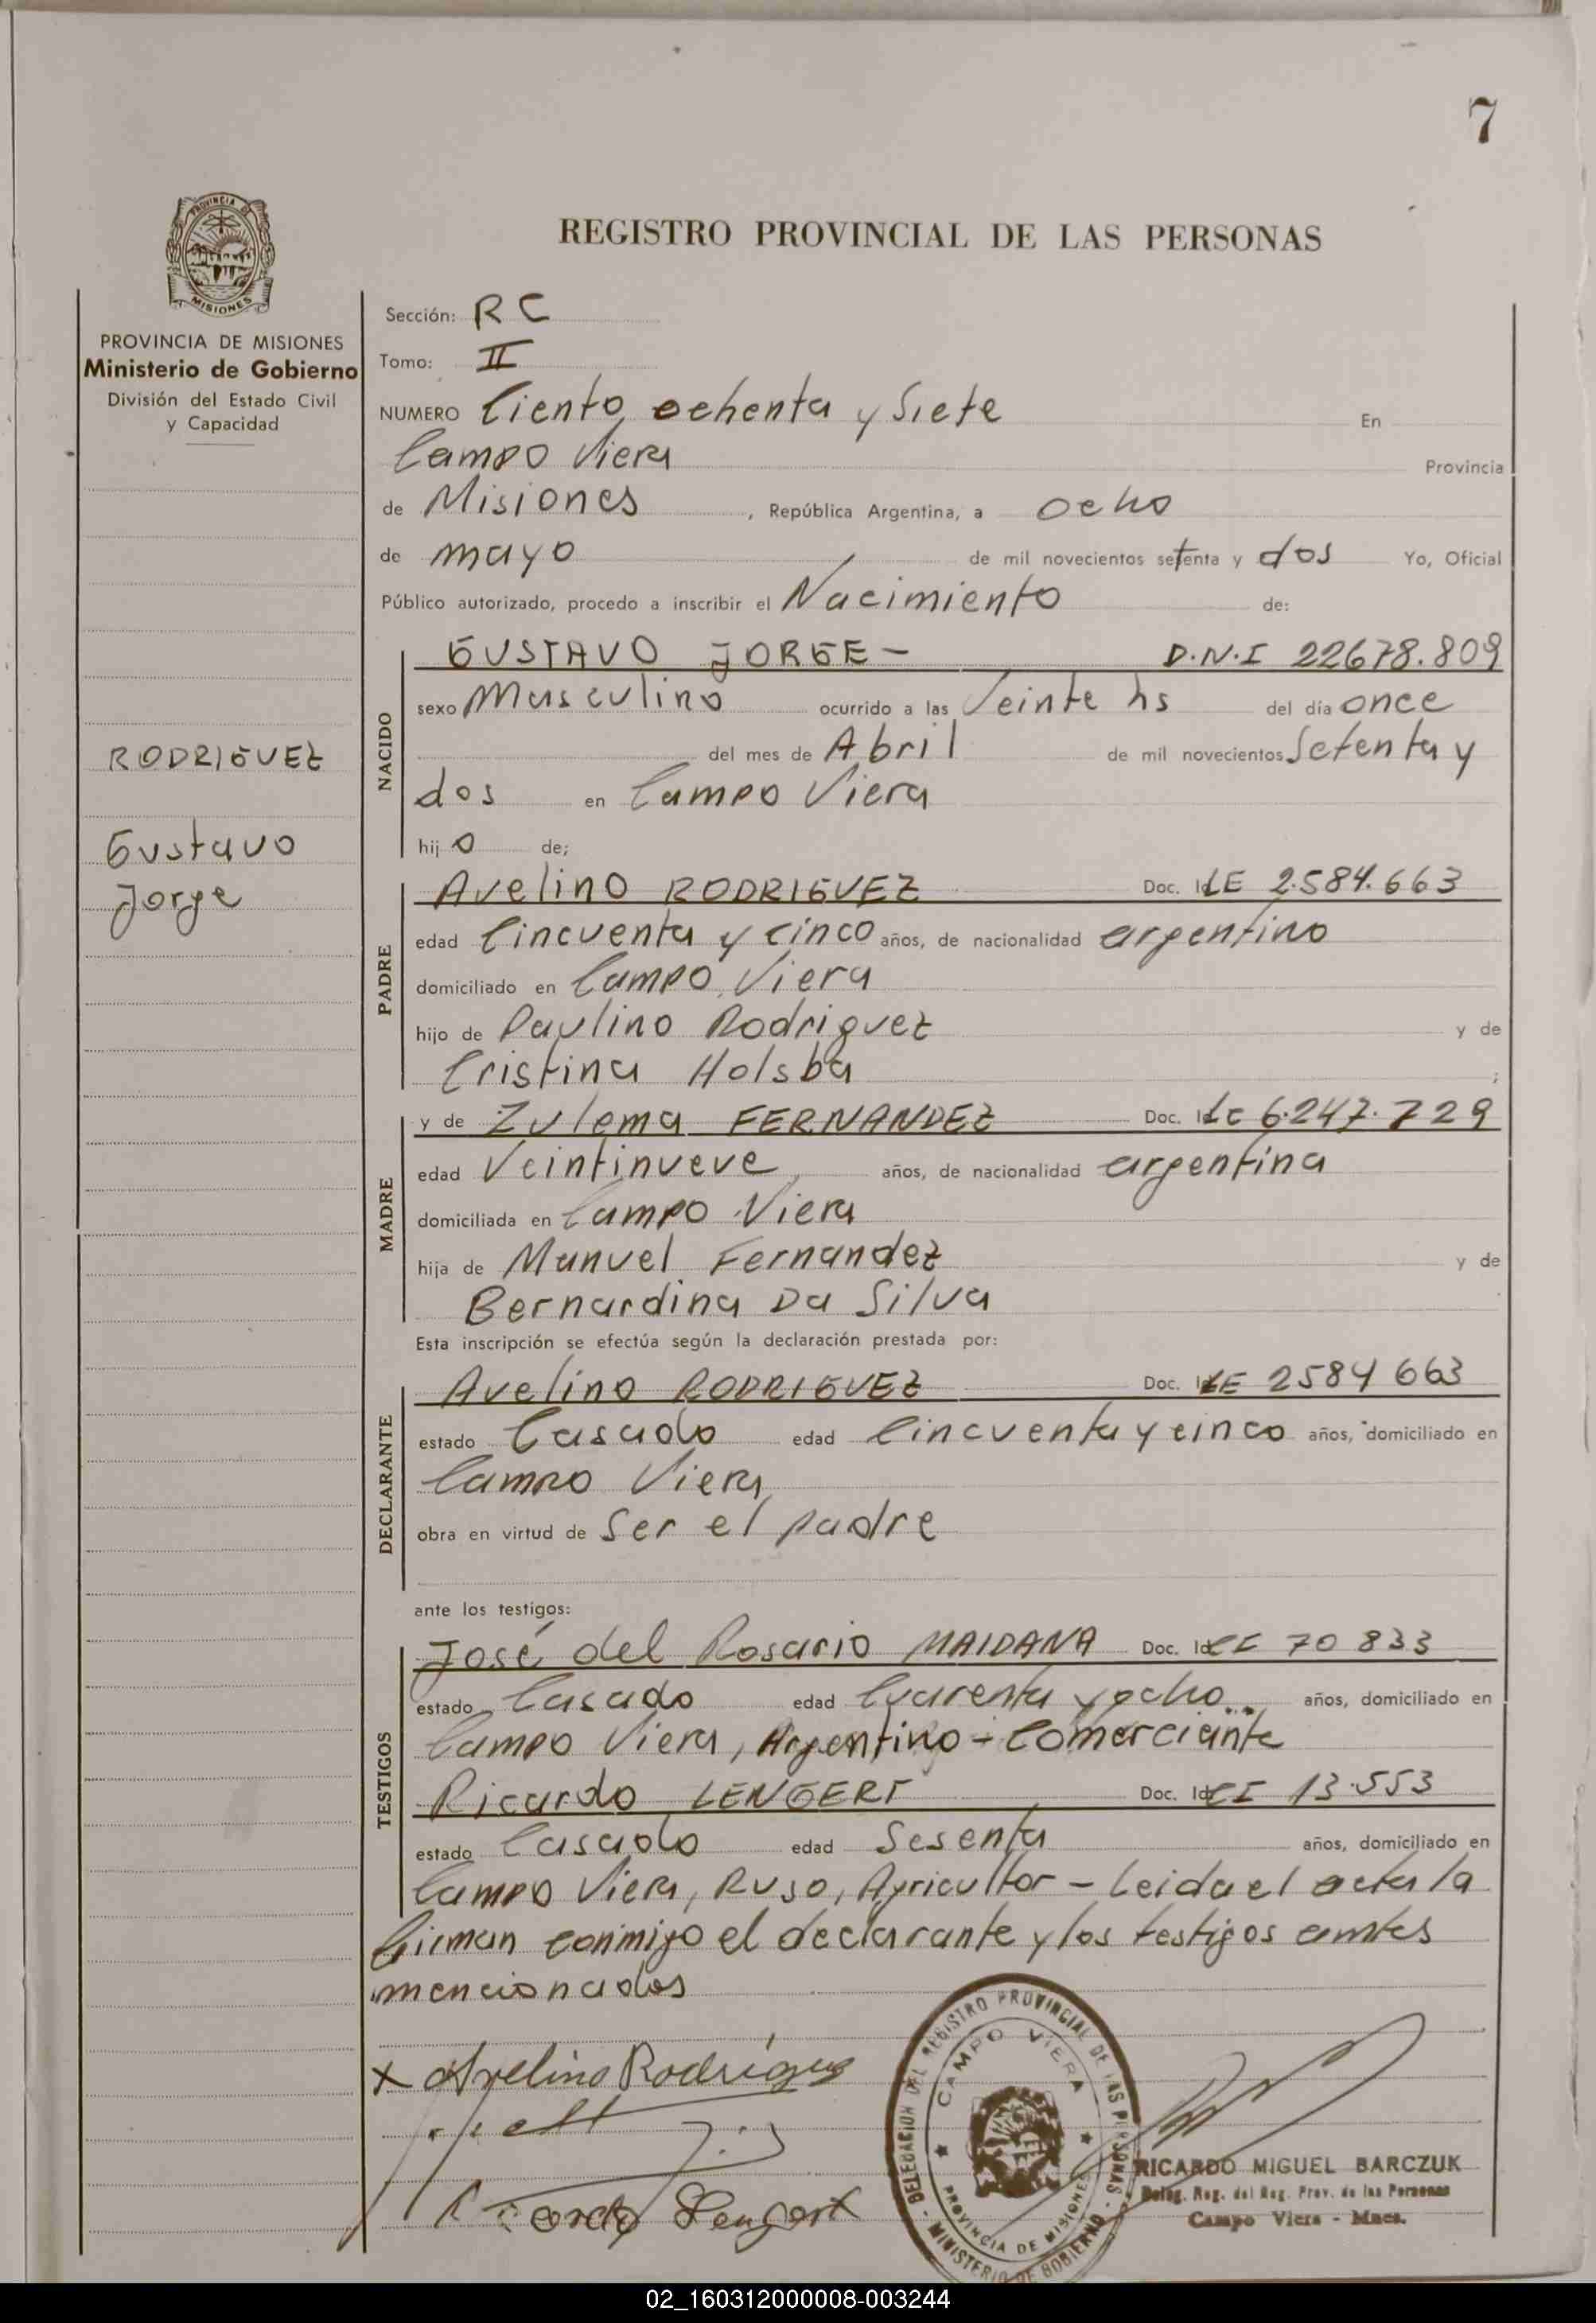 7
PROVINCIA DE
MISIONES
REGISTRO PROVINCIAL DE LAS PERSONAS
PROVINCIA DE MISIONES
Ministerio de Gobierno
División del Estado Civil
y Capacidad
RODRIGUEZ
Gustavo
Jorge
Sección: RC
Tomo: II
NUMERO Ciento ochenta y Siete En
Campo Viera Provincia
de Misiones, República Argentina, a ocho
de mayo de mil novecientos setenta y dos Yo, Oficial
Público autorizado, procedo a inscribir el Nacimiento de:
NACIDO
GUSTAVO JORGE - D.N.I 22678.809
sexo Masculino ocurrido a las Veinte hs del día once
del mes de Abril de mil novecientos Setenta y
dos en Campo Viera
hijo de;
PADRE
Avelino RODRIGUEZ Doc. Id LE 2.584.663
edad Cincuenta y cinco años, de nacionalidad argentino
domiciliado en Campo Viera
hijo de Paulino Rodriguez y de
Cristina Holsba ;
MADRE
y de Zulema FERNANDEZ Doc. Id LC 6.247.729
edad Veintinueve años, de nacionalidad argentina
domiciliada en Campo Viera
hija de Manuel Fernandez y de
Bernardina Da Silva
Esta inscripción se efectúa según la declaración prestada por:
DECLARANTE
Avelino RODRIGUEZ Doc. Id LE 2584663
estado Casado edad Cincuenta y cinco años, domiciliado en
Campo Viera
obra en virtud de Ser el padre
ante los testigos:
TESTIGOS
José del Rosario MAIDANA Doc. Id CI 70833
estado Casado edad Cuarenta y ocho años, domiciliado en
Campo Viera, Argentino - Comerciante
Ricardo LENGERT Doc. Id CI 13.553
estado Casado edad Sesenta años, domiciliado en
Campo Viera, Ruso, Agricultor - Leida el acta la
firman conmigo el declarante y los testigos antes
mencionados
x Avelino Rodriguez
Ricardo Lengert
DELEGACION DEL REGISTRO PROVINCIAL DE LAS PERSONAS - MINISTERIO DE GOBIERNO
CAMPO VIERA
PROVINCIA DE MISIONES
RICARDO MIGUEL BARCZUK
Deleg. Reg. del Reg. Prov. de las Personas
Campo Viera - Mnes.
02_160312000008-003244